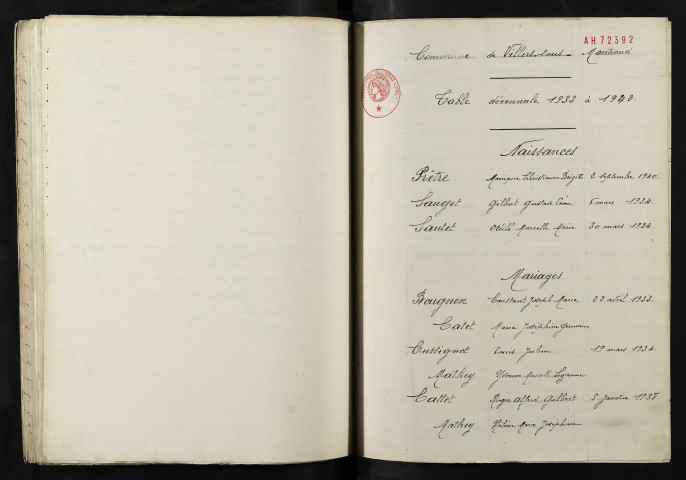 AH72392
Commune de Villers-sous-Montrond
Table décennale 1933 à 1942.
Naissances
Prêtre Monique Christianne Brigitte 2 septembre 1940.
Sauget Gilbert Gustave 6 mars 1934
Sautet Marcelle Marie 30 mars 1924.
Mariages
Bougnon Constant Joseph Marie 22 avril 1933.
Catet Marie Joséphine Germaine
Cussignot Louis Julien 19 mars 1934.
Mathey Yvonne Marcelle Suzanne
Cattet Roger Alfred Gilbert 5 janvier 1938.
Mathey Hélène Marie Joséphine